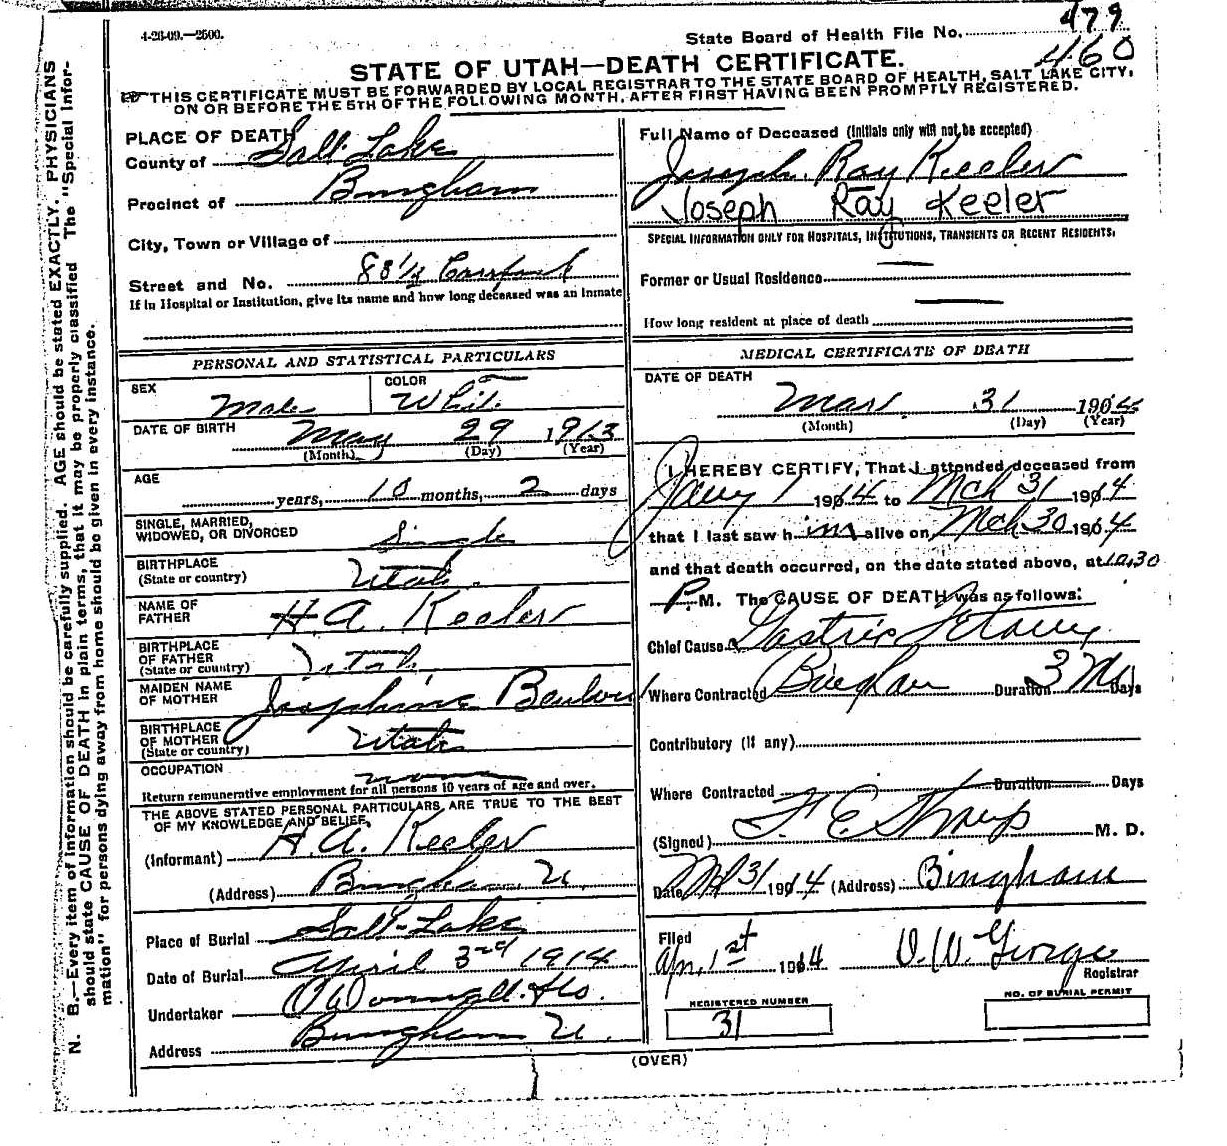 4-28-09.—2500.
State Board of Health File No. 479
460
STATE OF UTAH—DEATH CERTIFICATE.
THIS CERTIFICATE MUST BE FORWARDED BY LOCAL REGISTRAR TO THE STATE BOARD OF HEALTH, SALT LAKE CITY,
ON OR BEFORE THE 5TH OF THE FOLLOWING MONTH, AFTER FIRST HAVING BEEN PROMPTLY REGISTERED.
N. B.—Every item of information should be carefully supplied. AGE should be stated EXACTLY. PHYSICIANS
should state CAUSE OF DEATH in plain terms, that it may be properly classified The "Special Infor-
mation" for persons dying away from home should be given in every instance.
PLACE OF DEATH
County of Salt Lake
Precinct of Bingham
City, Town or Village of
Street and No. 88 1/2
If in Hospital or Institution, give its name and how long deceased was an Inmate
PERSONAL AND STATISTICAL PARTICULARS
SEX Male
COLOR White
DATE OF BIRTH May 29 1913
(Month) (Day) (Year)
AGE years, 10 months, 2 days
SINGLE, MARRIED,
WIDOWED, OR DIVORCED Single
BIRTHPLACE
(State or country) Utah.
NAME OF
FATHER H. A. Keeler
BIRTHPLACE
OF FATHER
(State or country) Utah
MAIDEN NAME
OF MOTHER Josephine
BIRTHPLACE
OF MOTHER
(State or country) Utah
OCCUPATION none
Return remunerative employment for all persons 10 years of age and over.
THE ABOVE STATED PERSONAL PARTICULARS ARE TRUE TO THE BEST
OF MY KNOWLEDGE AND BELIEF.
(Informant) H. A. Keeler
(Address) Bingham U.
Place of Burial Salt-Lake
Date of Burial April 3rd 1914
Undertaker O'Donnell &
Address Bingham U.
Full Name of Deceased (Initials only will not be accepted)
Joseph Ray Keeler
Joseph Ray Keeler
SPECIAL INFORMATION ONLY FOR HOSPITALS, INSTITUTIONS, TRANSIENTS OR RECENT RESIDENTS.
Former or Usual Residence
How long resident at place of death
MEDICAL CERTIFICATE OF DEATH
DATE OF DEATH
Mar. 31 1914
(Month) (Day) (Year)
I HEREBY CERTIFY, That I attended deceased from
Jany 1 1914 to Mch 31 1914
that I last saw h im alive on, Mch 30 1914
and that death occurred, on the date stated above, at 10,30
P. M. The CAUSE OF DEATH was as follows:
Chief Cause Gastric Tetany
Where Contracted Bingham Duration 3 Mo Days
Contributory (if any)
Where Contracted Duration Days
(Signed) F. E. M. D.
Date Mch 31 1914 (Address) Bingham
Filed
Apr. 1st 1914 George
Registrar
REGISTERED NUMBER
31
NO. OF BURIAL PERMIT
(OVER)